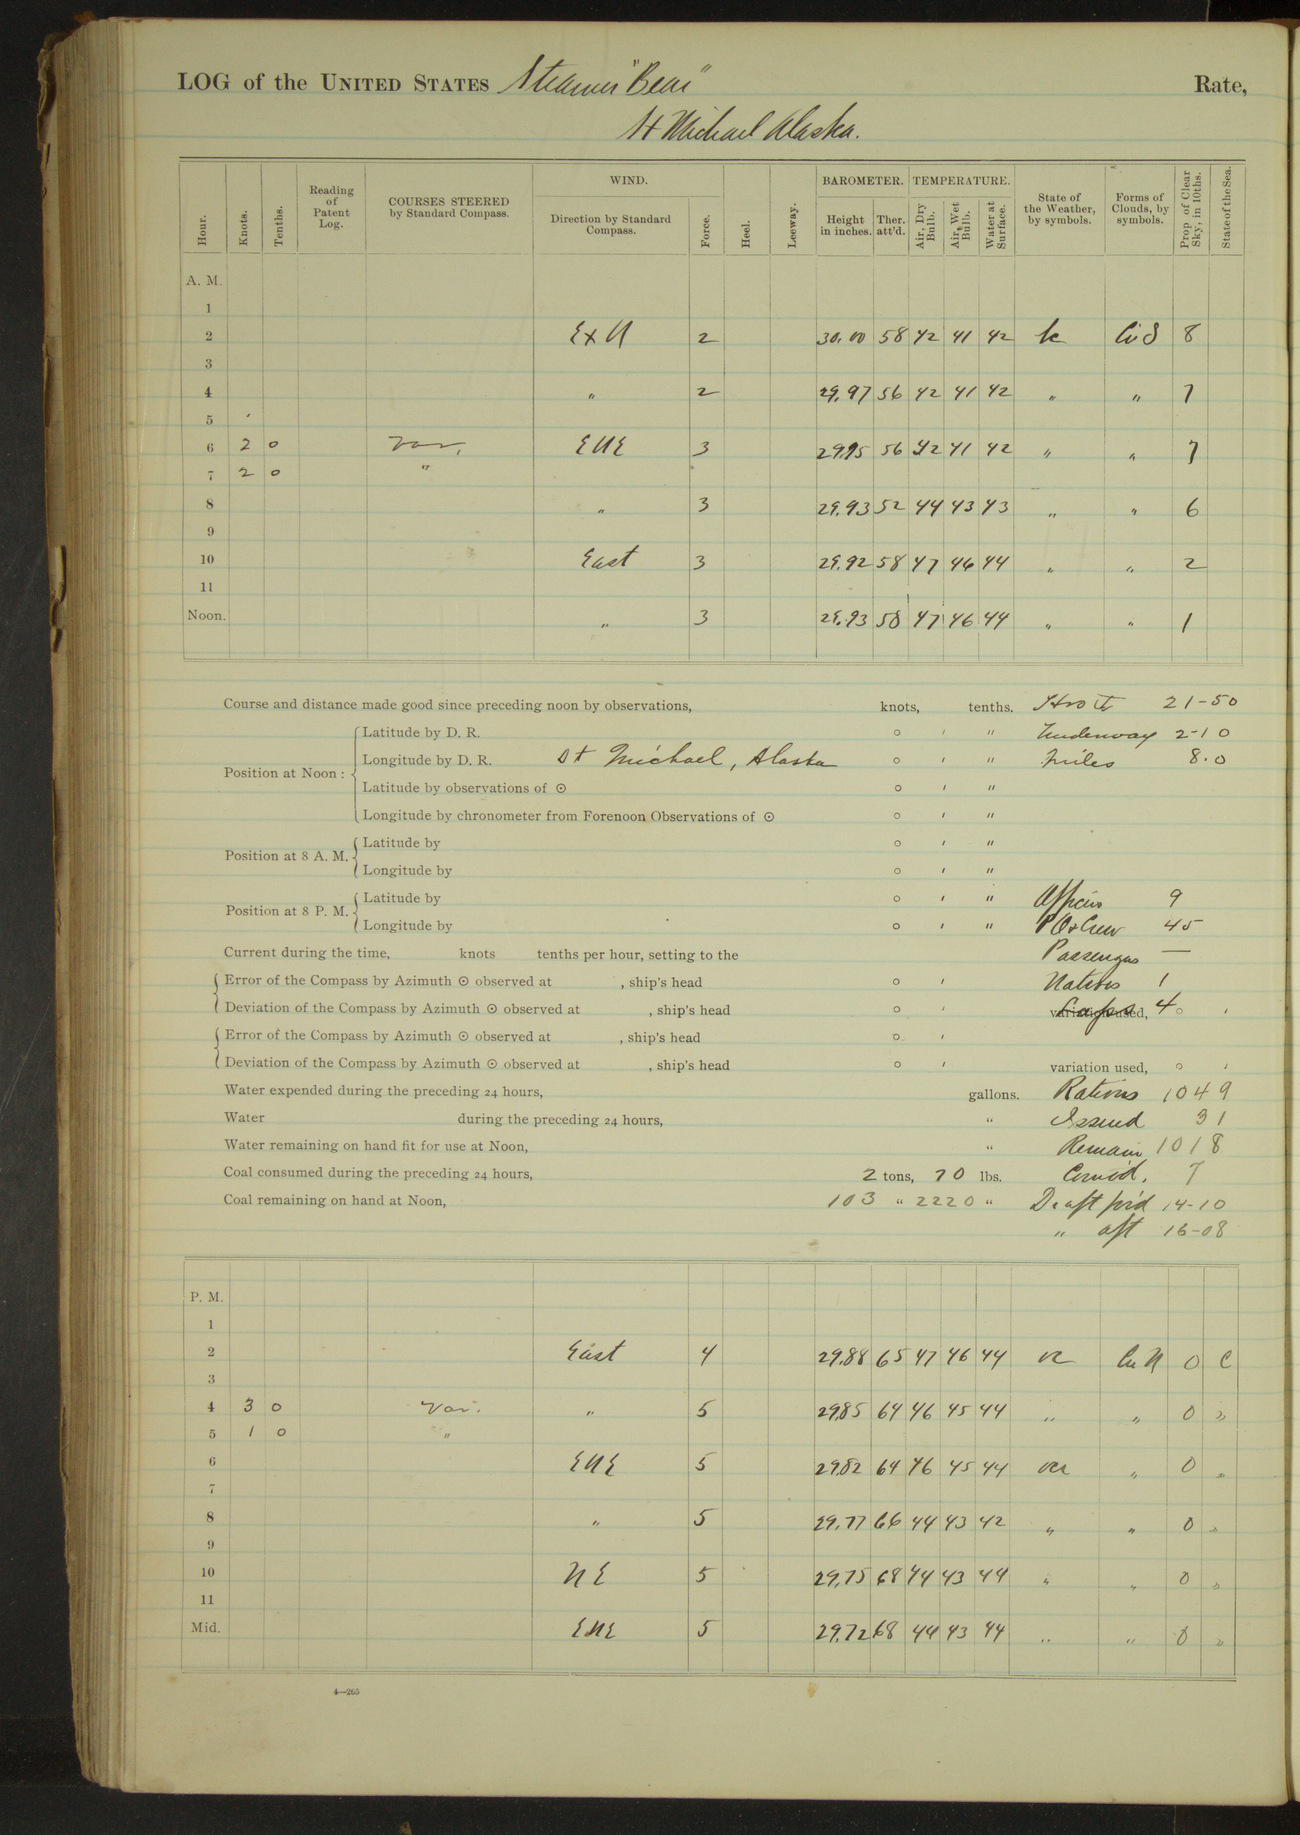 LOG of the UNITED STATES Steamer "Bear" Rate,
St Michael Alaska.
Hour. Knots. Tenths. Reading of Patent Log. COURSES STEERED by Standard Compass. WIND. Direction by Standard Compass. Force. Heel. Leeway. BAROMETER. Height in inches. Ther. att'd. TEMPERATURE. Air, Dry Bulb. Air, Wet Bulb. Water at Surface. State of the Weather, by symbols. Forms of Clouds, by symbols. Prop of Clear Sky, in 10ths. State of the Sea.
A. M.
1
2 ExN 2 30.00 58 42 41 42 bc CiS 8
3
4 " 2 29.97 56 42 41 42 " " 7
5
6 2 0 Var. ENE 3 29.95 56 42 41 42 " " 7
7 2 0 "
8 " 3 29.93 52 44 43 43 " " 6
9
10 East 3 29.92 58 47 46 44 " " 2
11
Noon. " 3 29.93 58 47 46 44 " " 1
Course and distance made good since preceding noon by observations, knots, tenths. 21-50
Position at Noon :
Latitude by D. R. ° ' " Underway 2-10
Longitude by D. R. St Michael, Alaska ° ' " Miles 8.0
Latitude by observations of ☉ ° ' "
Longitude by chronometer from Forenoon Observations of ☉ ° ' "
Position at 8 A. M.
Latitude by ° ' "
Longitude by ° ' "
Position at 8 P. M.
Latitude by ° ' " Officers 9
Longitude by ° ' " P O & Crew 45
Current during the time, knots tenths per hour, setting to the Passengers —
Error of the Compass by Azimuth ☉ observed at , ship's head ° ' Natives 1
Deviation of the Compass by Azimuth ☉ observed at , ship's head ° ' variation used, 4 ° '
Error of the Compass by Azimuth ☉ observed at , ship's head ° '
Deviation of the Compass by Azimuth ☉ observed at , ship's head ° ' variation used, ° '
Water expended during the preceding 24 hours, gallons. Rations 1049
Water during the preceding 24 hours, " Issued 31
Water remaining on hand fit for use at Noon, " Remain 1018
Coal consumed during the preceding 24 hours, 2 tons, 70 lbs. Com'd. 7
Coal remaining on hand at Noon, 103 " 2220 " Draft for'd 14-10
" aft 16-08
P. M.
1
2 East 4 29.88 65 47 46 44 oc CuN 0 C
3
4 3 0 Var. " 5 29.85 64 46 45 44 " " 0 "
5 1 0 "
6 ENE 5 29.82 64 46 45 44 " 0 "
7
8 " 5 29.77 66 44 43 42 " " 0 "
9
10 NE 5 29.75 68 44 43 44 " " 0 "
11
Mid. ENE 5 29.72 68 44 43 44 " " 0 "
4—265